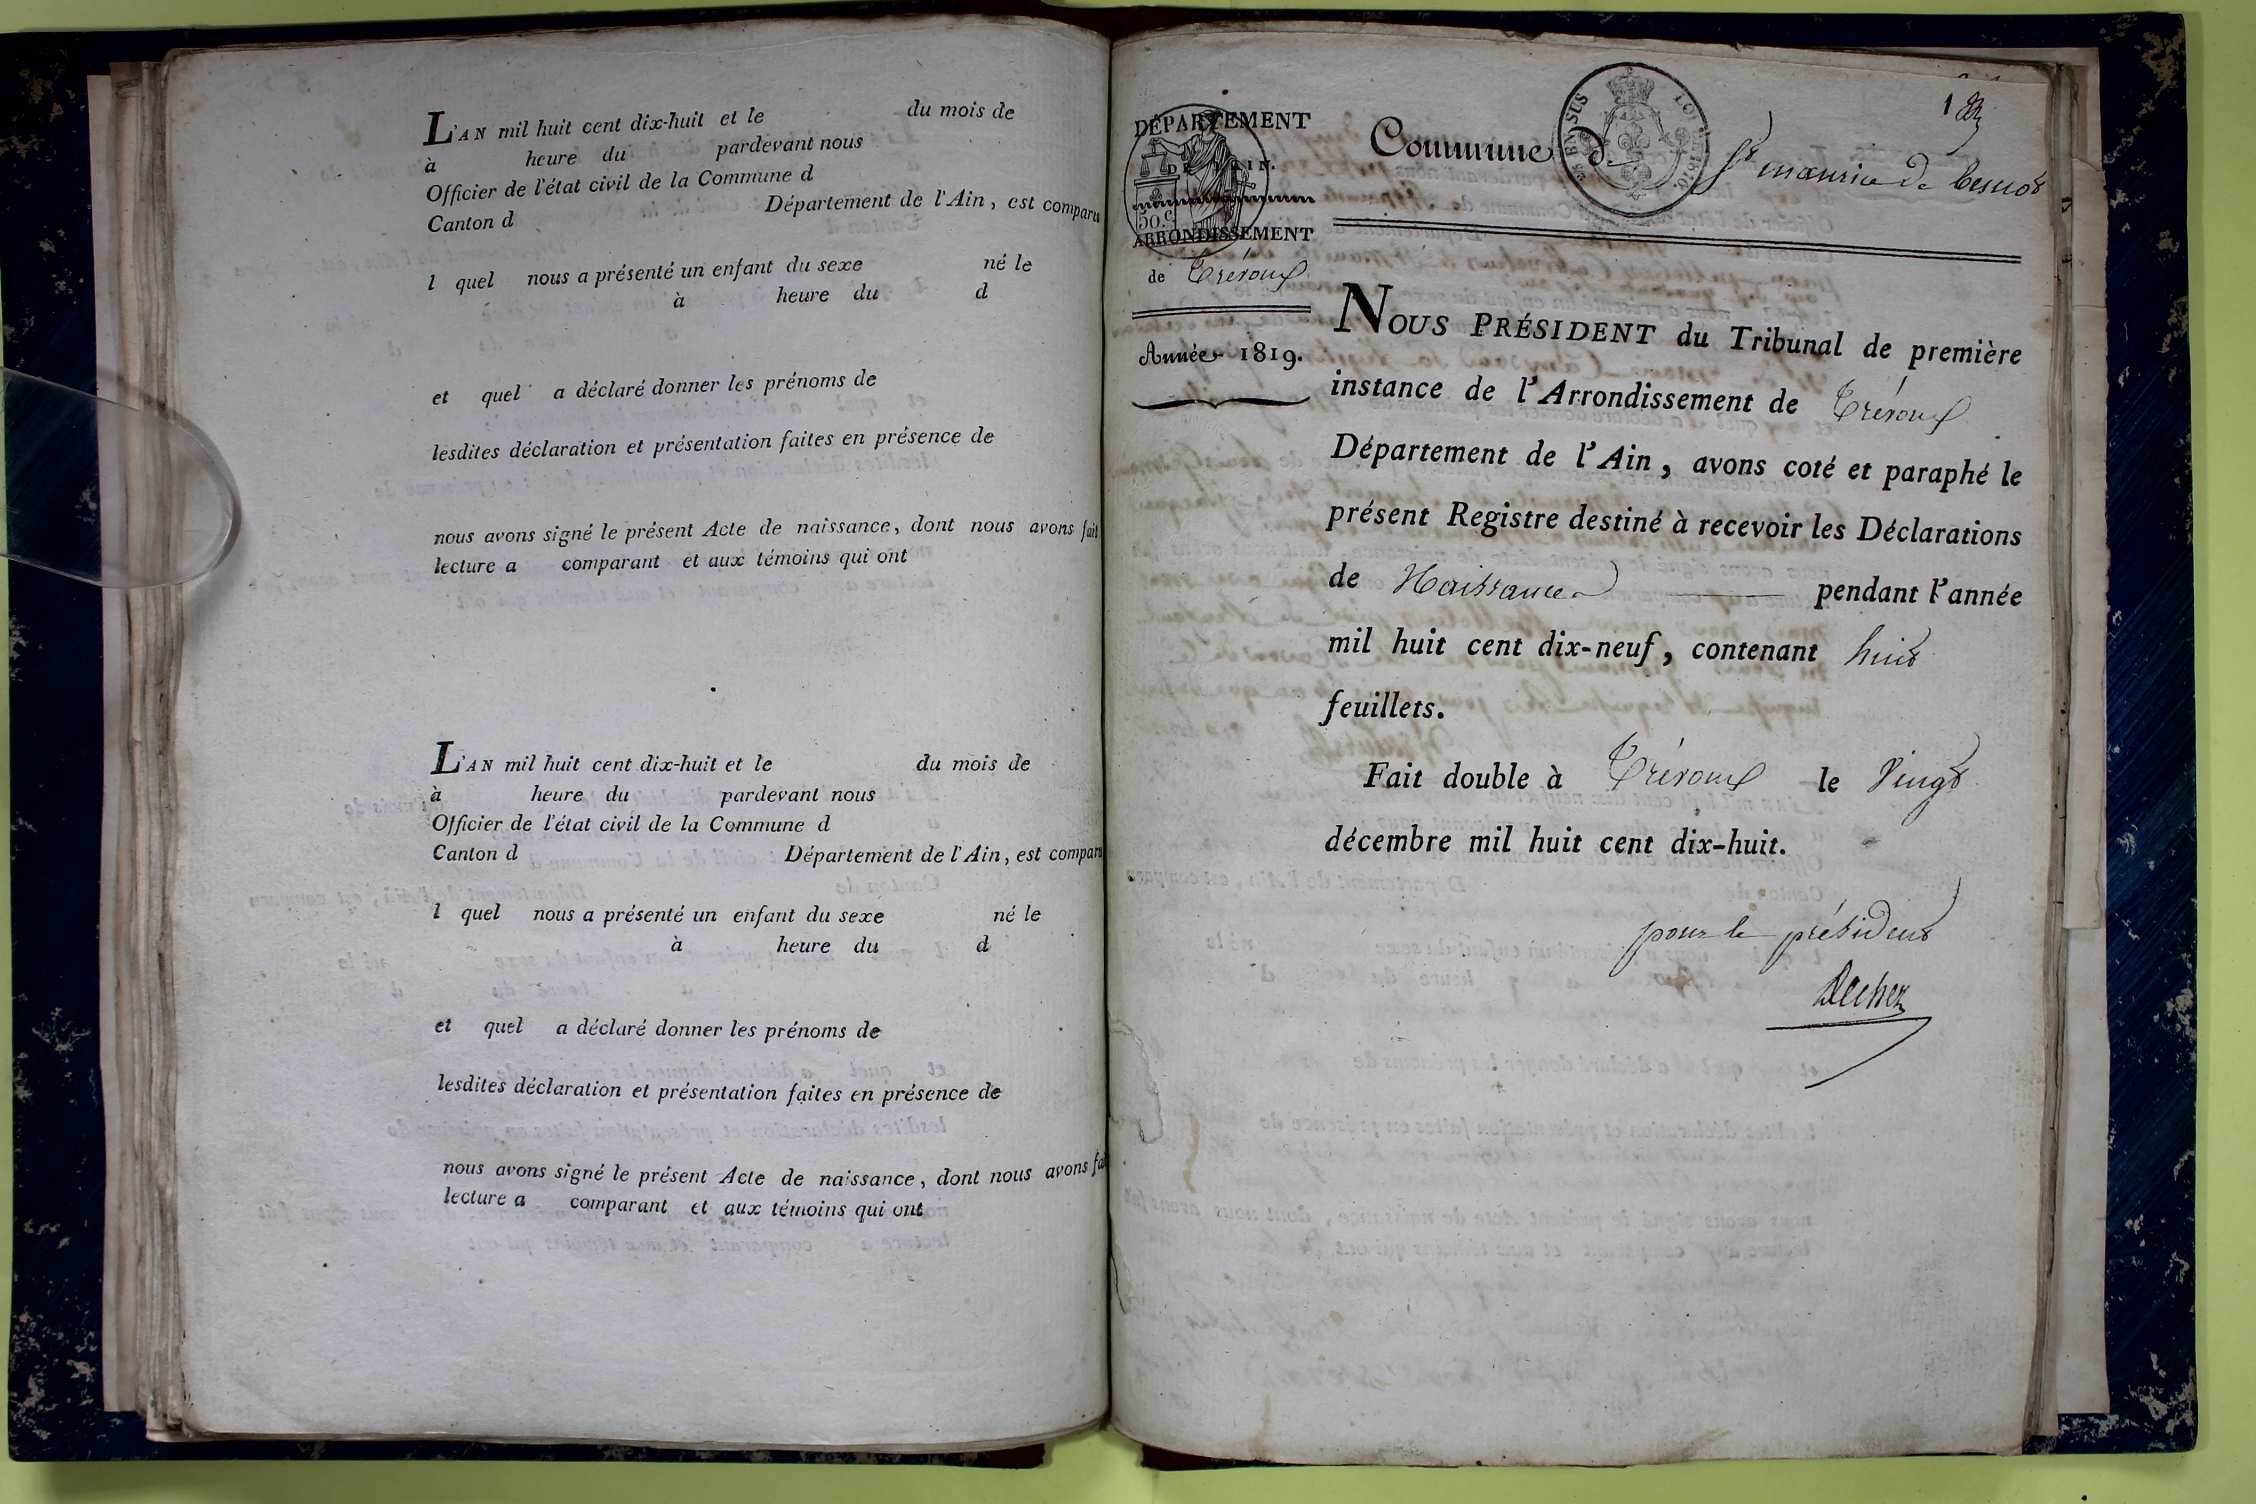 L'AN mil huit cent dix-huit et le du mois de
à heure du pardevant nous
Officier de l'état civil de la Commune d
Canton d Département de l'Ain, est comparu
l quel nous a présenté un enfant du sexe né le
à heure du d
et quel a déclaré donner les prénoms de
lesdites déclaration et présentation faites en présence de
nous avons signé le présent Acte de naissance, dont nous avons fait
lecture a comparant et aux témoins qui ont
L'AN mil huit cent dix-huit et le du mois de
à heure du pardevant nous
Officier de l'état civil de la Commune d
Canton d Département de l'Ain, est comparu
l quel nous a présenté un enfant du sexe né le
à heure du d
et quel a déclaré donner les prénoms de
lesdites déclaration et présentation faites en présence de
nous avons signé le présent Acte de naissance, dont nous avons fai
lecture a comparant et aux témoins qui ont
DÉPARTEMENT
DE L'AIN.
50.c
ARRONDISSEMENT
de Trévoux
Année 1819.
1
Commune de St maurice de beynost
NOUS PRÉSIDENT du Tribunal de première
instance de l'Arrondissement de Trévoux
Département de l'Ain, avons coté et paraphé le
présent Registre destiné à recevoir les Déclarations
de Naissance pendant l'année
mil huit cent dix-neuf, contenant huit
feuillets.
Fait double à Trévoux le Vingt
décembre mil huit cent dix-huit.
pour le président